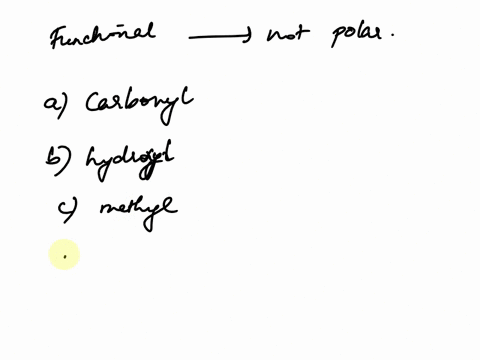 Functional ⟶ not polar.
a) Carbonyl
b) hydroxyl
c) methyl